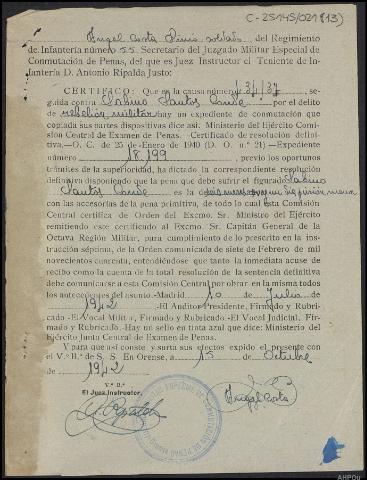 C-25145/021 (13)
Angel Costa soldado, del Regimiento
de Infantería número 55. Secretario del Juzgado Militar Especial de
Conmutación de Penas, del que es Juez Instructor el Teniente de In-
fantería D. Antonio Ripalda Justo:
CERTIFICO: Que en la causa número
seguida contra Sabino Santos Conde por el delito
de rebelión militar hay un expediente de conmutación que
copiada sus partes dispositivas dice así: Ministerio del Ejército Comi-
sión Central de Examen de Penas.-Certificado de resolución defini-
tiva,-O. C. de 25 de Enero de 1940 (D. O. n.º 21)-Expediente
número 18.199, previo los oportunos
trámites de la superioridad, ha dictado la correspondiente resolución
definitiva disponiendo que la pena que debe sufrir el figurado Sabino
Santos Conde es la de
con las accesorias de la pena primitiva, de todo lo cual esta Comisión
Central certifica de Orden del Excmo. Sr. Ministro del Ejército
remitiendo este certificado al Excmo. Sr. Capitán General de la
Octava Región Militar, para cumplimiento de lo prescrito en la
instrucción séptima, de la Orden comunicada de siete de Febrero de mil
novecientos cuarenta, entendiéndose que tanto la inmediata acuse de
recibo como la cuenta de la total resolución de la sentencia definitiva
debe comunicarse a esta Comisión Central por obrar en la misma todos
los antecedentes del asunto.-Madrid 10 de Julio de
1942.-El Auditor Presidente, Firmado y Rubri-
cado.-El Vocal Militar, Firmado y Rubricado.-El Vocal Judicial, Fir-
mado y Rubricado.-Hay un sello en tinta azul que dice: Ministerio del
Ejército Junta Central de Examen de Penas.
Y para que así conste y surta sus efectos expido el presente con
el V.º B.º de S. S. En Orense, a 15 de Octubre
de 1942
V.º B.º
El Juez Instructor,
A. Ripalda
Angel Costa
AHPOu